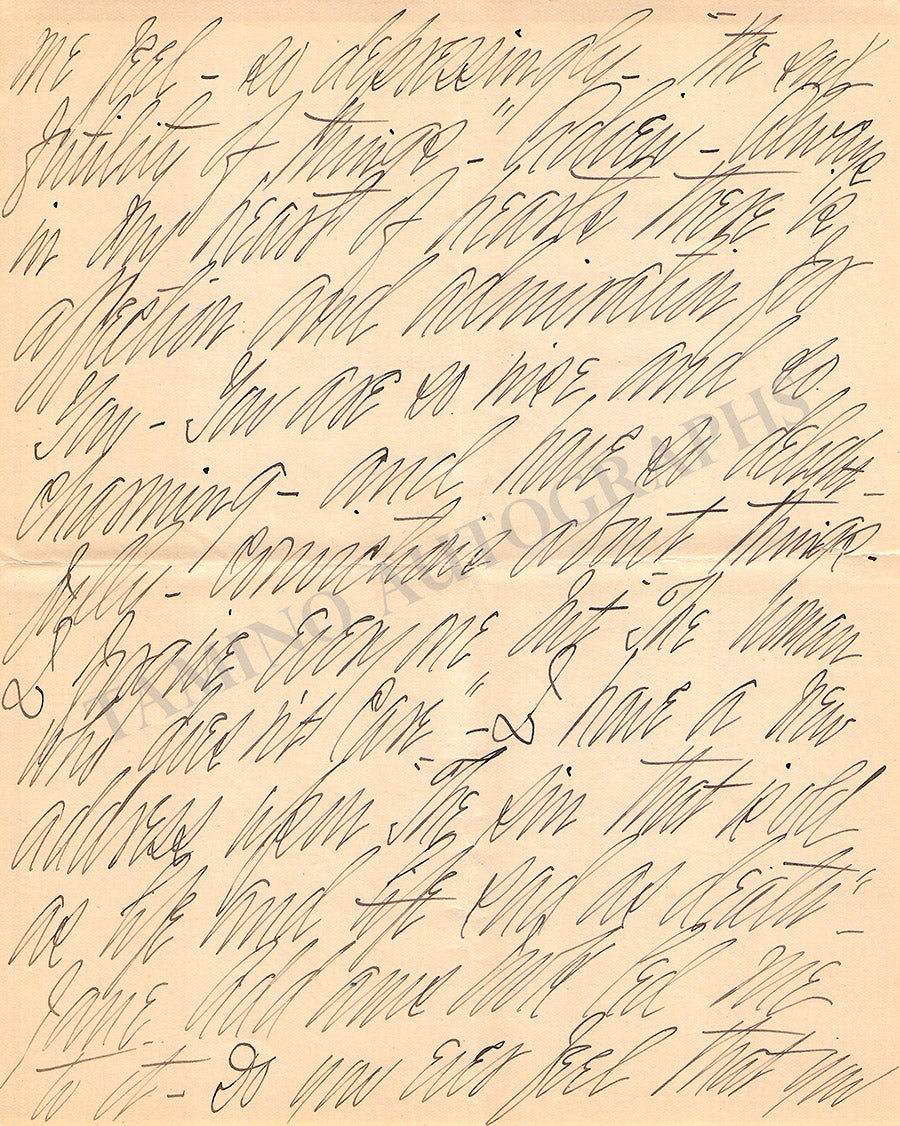 me feel - so depressingly - "the sad
futility of things -" Always
in my heart of hearts there is
affection and admiration for
You - You are so nice, and so
charming - and have so delight-
fully - convictions about things.
& praise every one but "The human
who does n't Care" - & have a new
address upon "The sin that is old
as life and life sad as death" -
Jane Addams book led me
to it - Do you ever feel that you
TAMINO AUTOGRAPHS